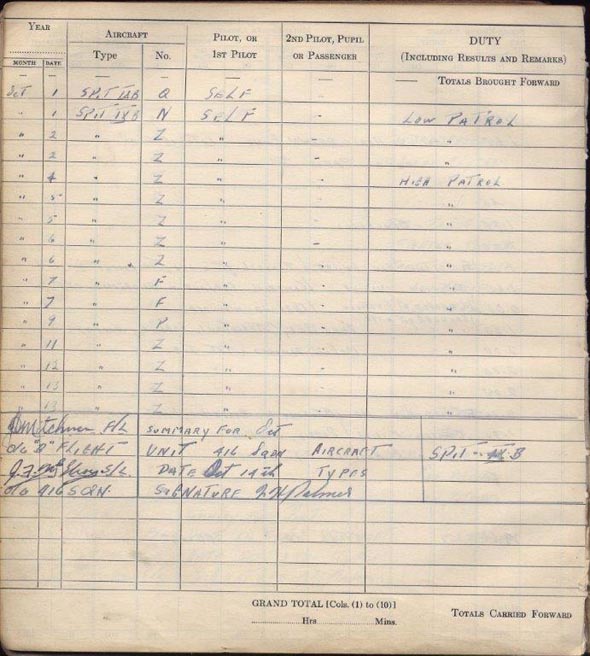 YEAR AIRCRAFT PILOT, OR 1ST PILOT 2ND PILOT, PUPIL OR PASSENGER DUTY (INCLUDING RESULTS AND REMARKS)
MONTH DATE Type No.
— — — — — — — TOTALS BROUGHT FORWARD
Oct 1 SPIT IXB Q SELF -
" 1 SPIT IXB N SELF - LOW PATROL
" 2 " Z " - "
" 2 " Z " - "
" 4 " Z " - HIGH PATROL
" 5 " Z " - "
" 5 " Z " - "
" 6 " Z " - "
" 6 " Z " - "
" 7 " F " - "
" 7 " F " - "
" 9 " P " - "
" 11 " Z " - "
" 12 " Z " - "
" 13 " Z " - "
" 13 " Z " - "
Mitchner F/L SUMMARY FOR Oct
O/C "A" FLIGHT UNIT 416 SQDN AIRCRAFT SPIT - IX B
S/L. DATE Oct 14th TYPES
O/C 416 SQN. SIGNATURE Palmer
GRAND TOTAL [Cols. (1) to (10)]
Hrs. Mins.
TOTALS CARRIED FORWARD